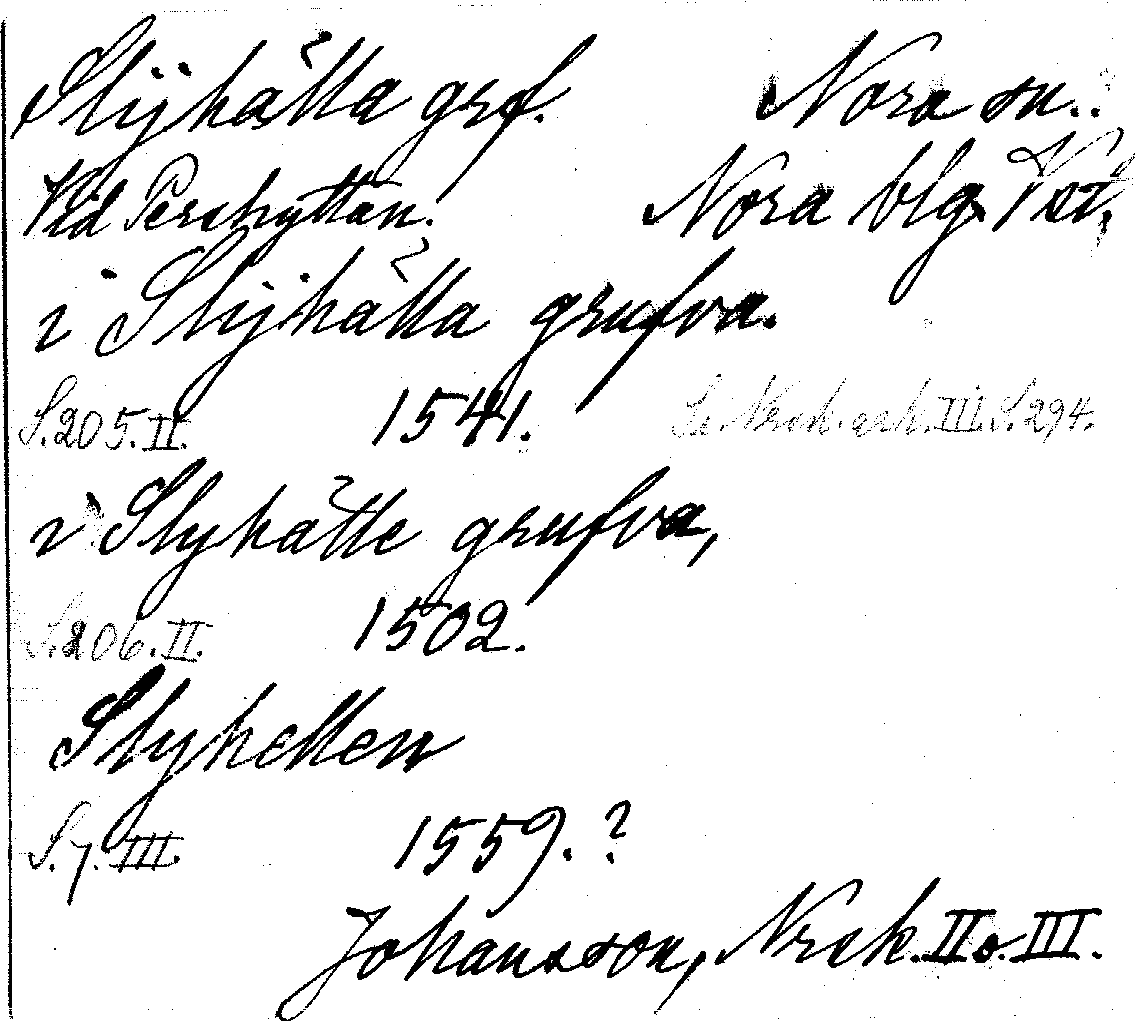 Slijhätta grf. Nora sn.
Vid Pershyttan. Nora blg. Vst.
i Slijhätta grufva.
S. 205. II. 1541. Se Nrsk. ark. III. S. 294.
i Slyhätte grufva,
S. 206. II. 1502.
Slyhetten
S. 7. III. 1559. ?
Johansson, Nrsk. II o. III.